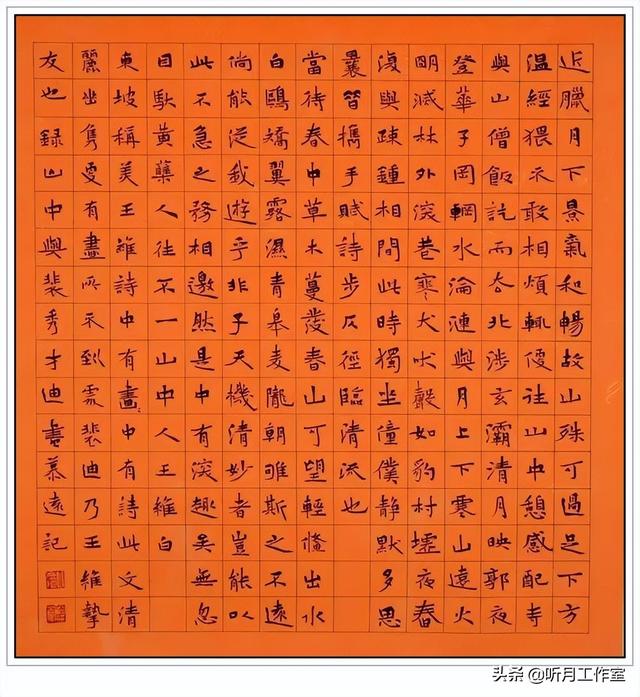 近臘月下景氣和暢故山殊可過足下方
溫經猥不敢相煩輒便往山中憩感配寺
與山僧飯訖而去北涉玄灞清月映郭夜
登華子岡輞水淪漣與月上下寒山遠火
明滅林外深巷寒犬吠聲如豹村墟夜舂
復與疎鍾相間此時獨坐僮僕靜默多思
曩昔攜手賦詩步仄徑臨清流也
當待春中草木蔓發春山可望輕鯈出水
白鷗矯翼露濕青皋麥隴朝雊斯之不遠
倘能從我遊乎非子天機清妙者豈能以
此不急之務相邀然是中有深趣矣無忽
因馱黃蘗人往不一山中人王維白
東坡稱美王維詩中有畫々中有詩此文清
麗坐雋更有畫所不到處裴迪乃王維摯
友也錄山中與裴秀才迪書慕遠記
头条 @听月工作室